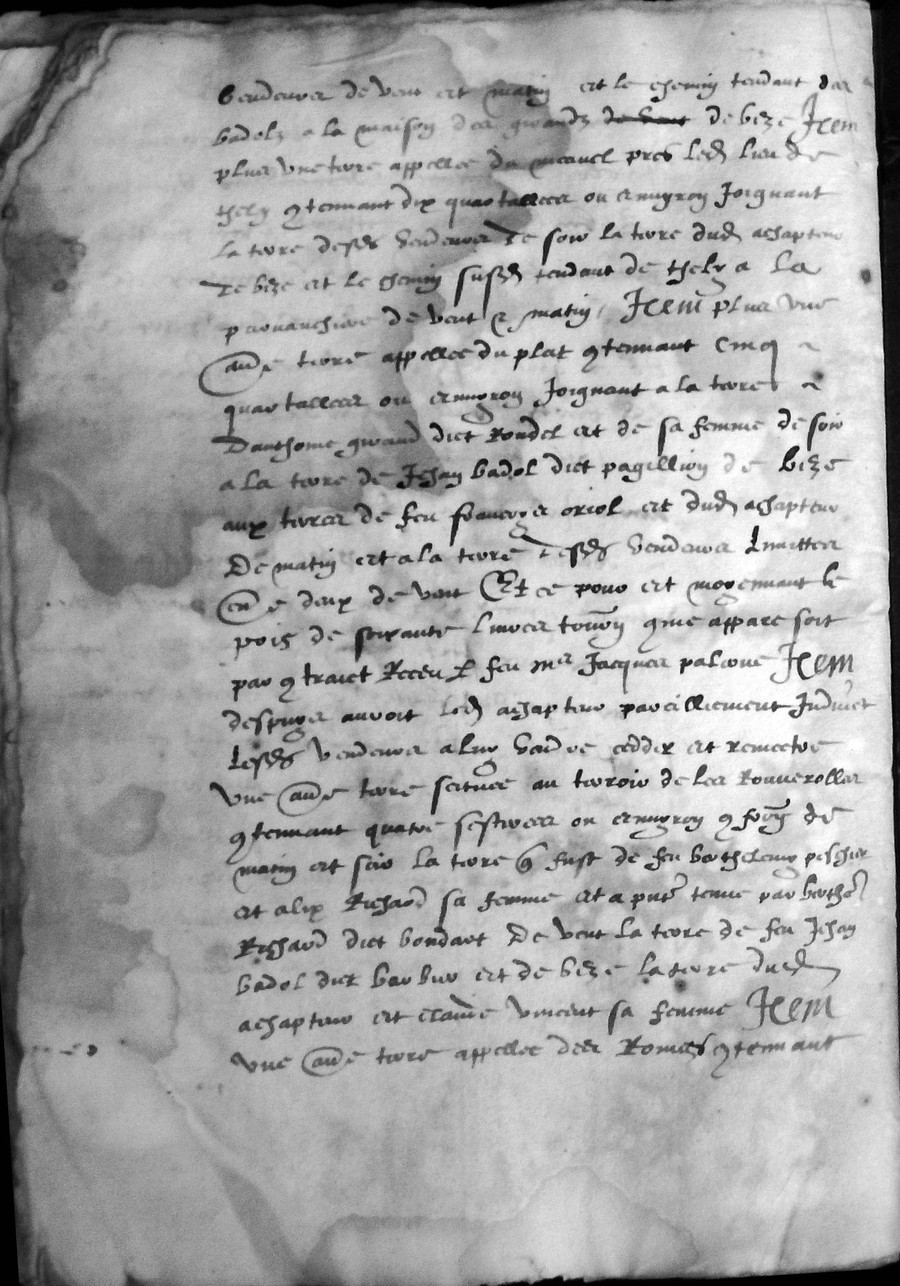 vendeurs de vent et matin et le chemin tendant des
badolz a la maison des girardz de vent de bize Item
plus une terre appellee du pres led lieu de
thely contenant dix quartallees ou environ Joignant
la terre desds vendeurs de soir la terre dud achapteur
de bize et le chemin susd tendant de thely a la
de vent & matin, Item plus une
aue terre appellee du plat contenant cinq
quartallees ou environ Joignant a la terre
Danthome girard dict Rondel et de sa femme de soir
a la terre de Jehan badol dict pagillion de bize
aux terres de feu francoys oriol et dud achapteur
De matin et a la terre desds vendeurs limittes
de vent Et ce pour et moyennant le
pois de soixante livres tourn come appare soit
par contraict Receu p feu mre Jacques palerne Item
despuys auroit led achapteur pareilliement Induict
lesds vendeurs a luy vendre cedder et remectre
une aue terre scituee au terroir de les Rouverolles
contenant quatre sestirees ou environ de
matin et soir la terre fust de feu berthelemy peschier
et alix Richard sa femme et a pnt tenue par berthe
Richard dict bondart De vent la terre de feu Jehan
badol dict barbier et de bize la terre dud
achapteur et claude vincent sa femme Item
une aue terre appellee des contenant